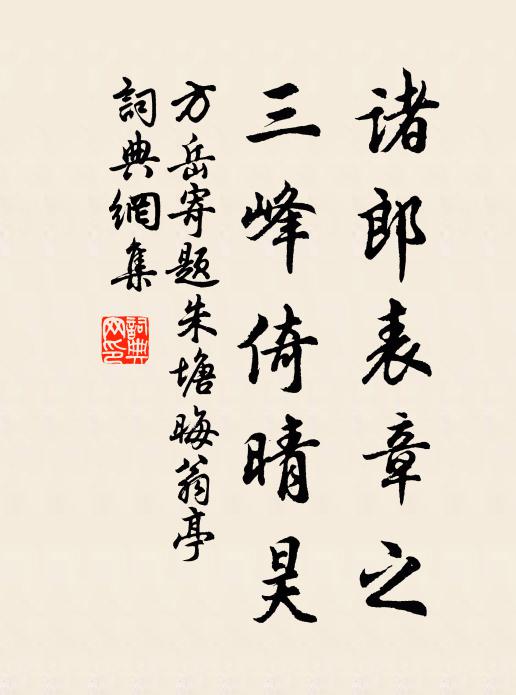 诸郎表章之
三峰倚晴昊
方岳寄题朱塘晦翁亭
詞典網集
詞典网印